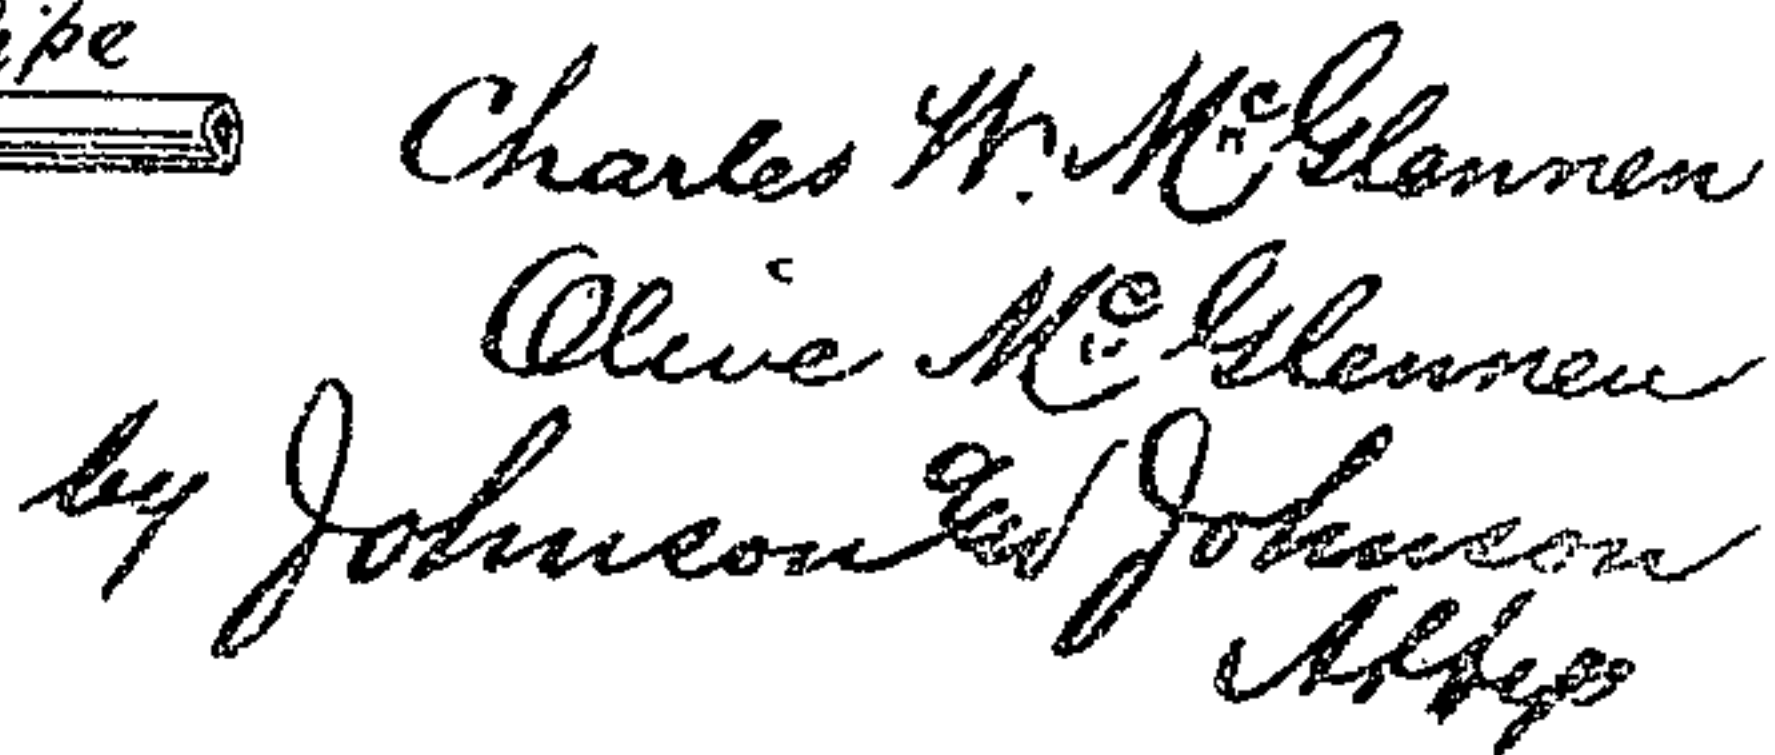 Charles W. McGlennen
Olive McGlennen
by Johnson and Johnson
Attys